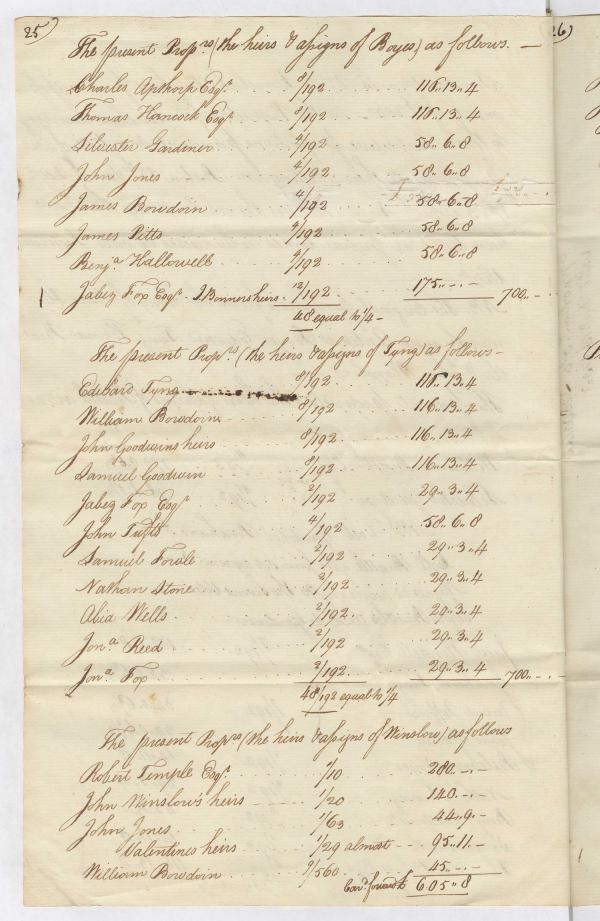 25)
26)
The present Prop.rs (the heirs & assigns of Boyes) as follows. —
Charles Apthorp Esq.r 8/192 116..13..4
Thomas Hancock Esq.r 8/192 116..13..4
Silvester Gardiner 4/192 58..6..8
John Jones 4/192 58..6..8
James Bowdoin 4/192 58..6..8
James Pitts 4/192 58..6..8
Benj.a Hallowell 4/192 58..6..8
Jabez Fox Esq.r J. Bonners heirs. 12/192 175..-.- 700..-.
48 equal to 1/4 -
The present Prop.rs (the heirs & assigns of Tyng) as follows -
Edward Tyng 8/192 116..13..4
William Bowdoin 8/192 116..13..4
John Goodwins heirs 8/192 116..13..4
Samuel Goodwin 8/192 116..13..4
Jabez Fox Esq.r 2/192 29..3..4
John Tufts 4/192 58..6..8
Samuel Fowle 2/192 29..3..4
Nathan Stone 2/192 29..3..4
Abia Wells 2/192 29..3..4
Jon.a Reed 2/192 29..3..4
Jon.a Fox 2/192 29..3..4 700..-.-
48/192 equal to 1/4
The present Prop.rs (the heirs & assigns of Winslow) as follows
Robert Temple Esq.r 1/10 280.-.-
John Winslow's heirs 1/20 140.-.-
John Jones 1/63 44..9.-
Valentines heirs 1/29 almost 95..11.-
William Bowdoin 9/560 45.-.-
Car.d forward £ 605..8